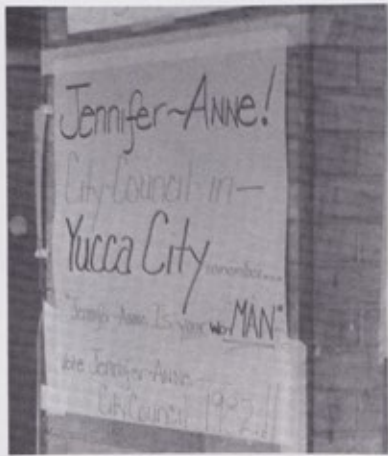 Jennifer~Anne!
City Council in—
Yucca City remember...
"Jennifer-Anne Is your woMAN"
Vote Jennifer-Anne—
City Council